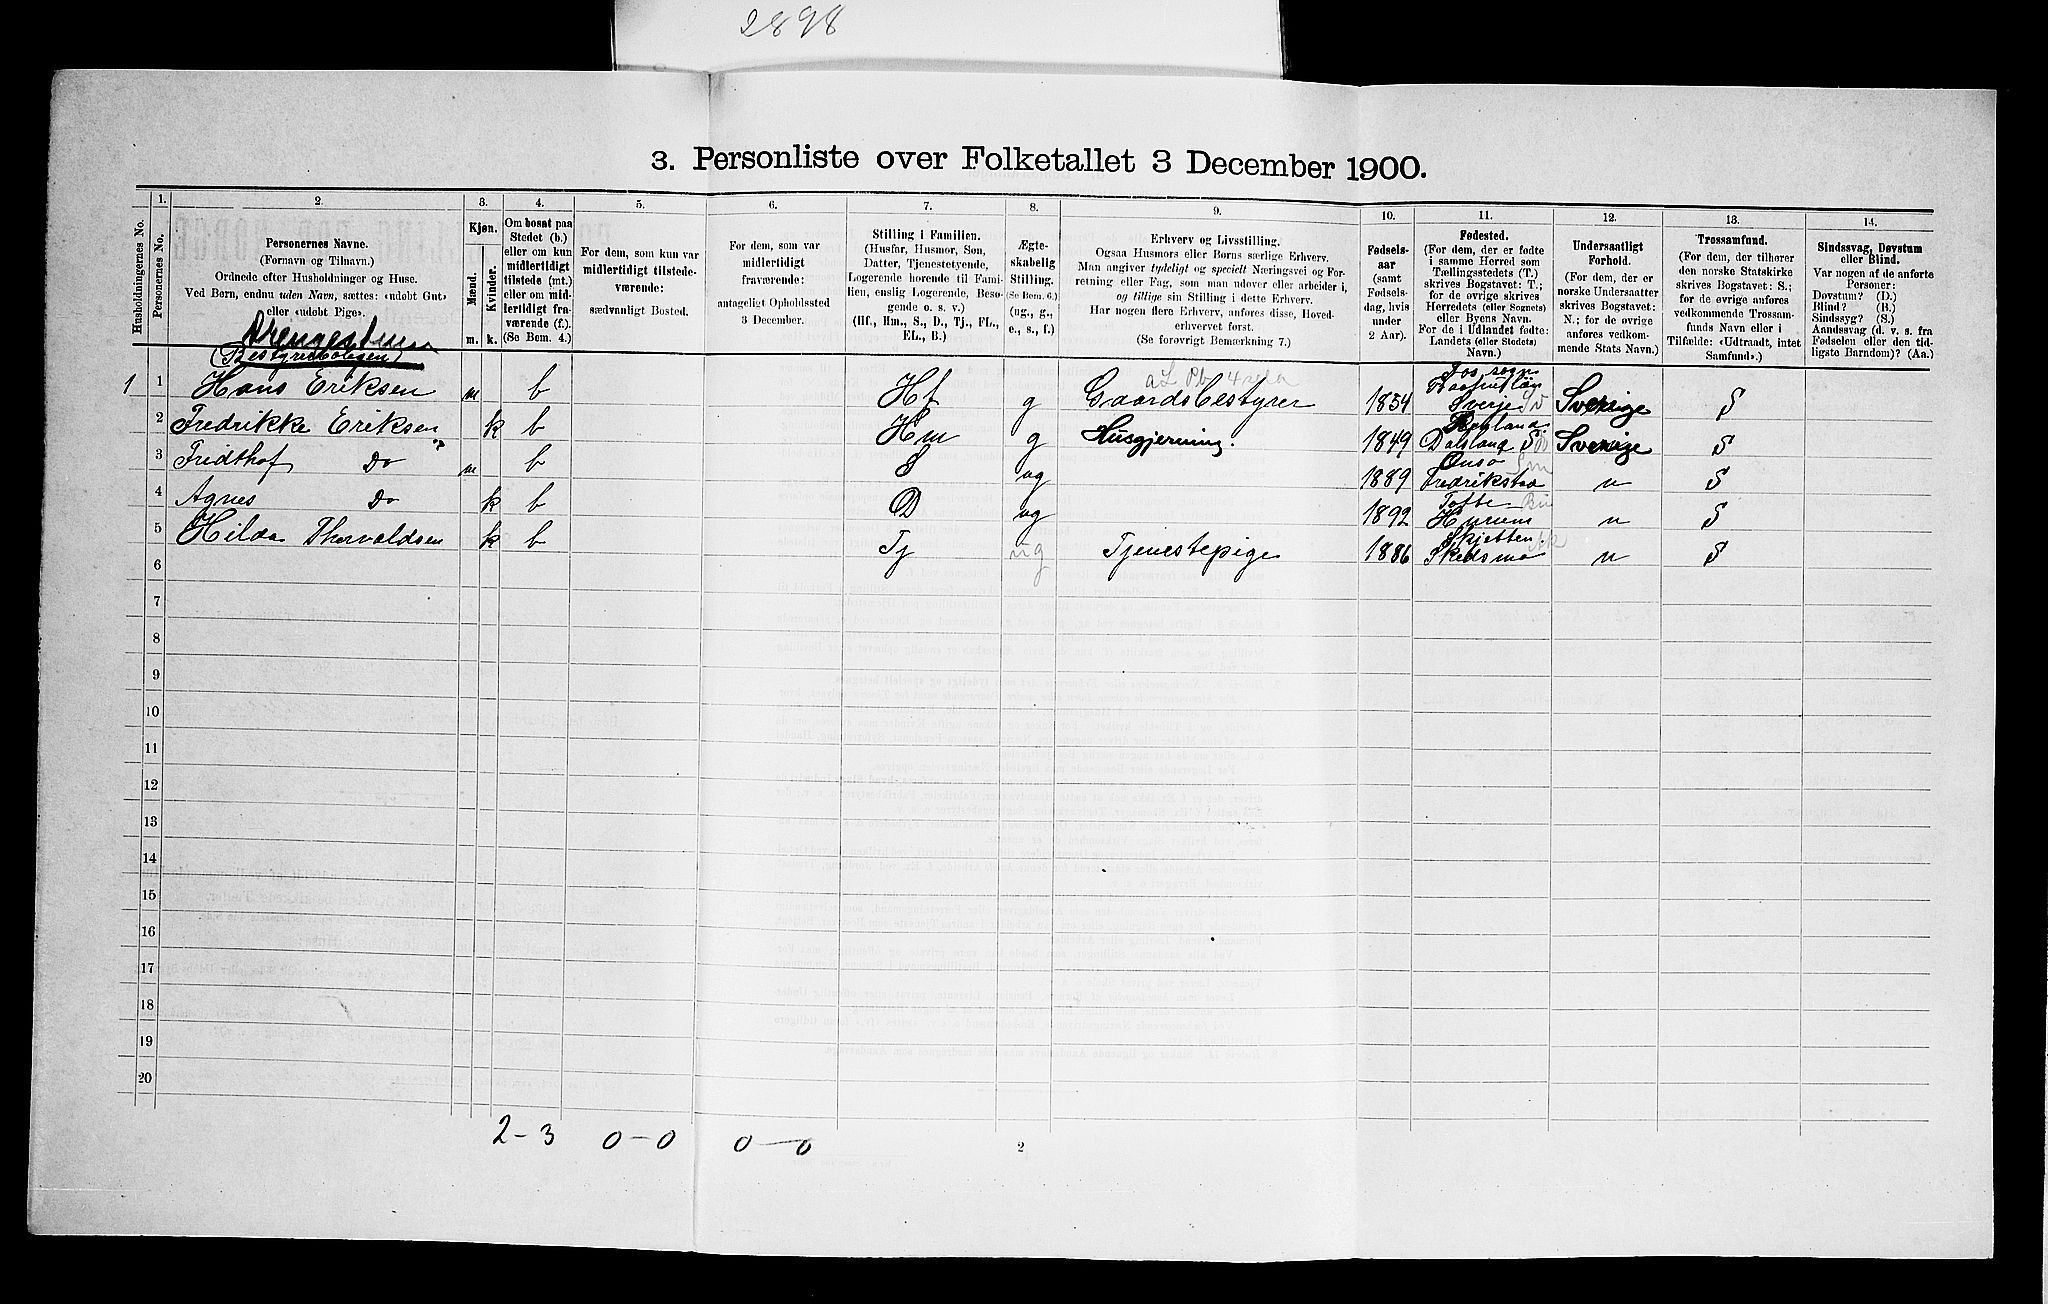 2898
3. Personliste over Folketallet 3 December 1900.
1. 2. 3. 4. 5. 6. 7. 8. 9. 10. 11. 12. 13. 14.
Husholdningernes No.
Personernes No.
Personernes Navne.
(Fornavn og Tilnavn.)
Ordnede efter Husholdninger og Huse.
Ved Børn, endnu uden Navn, sættes: «udøbt Gut»
eller «udøbt Pige».
Kjøn.
Mænd. Kvinder.
m. k.
Om bosat paa
Stedet (b.)
eller om kun
midlertidigt
tilstede (mt.)
eller om mid-
lertidigt fra-
værende (f.).
(Se Bem. 4.)
For dem, som kun var
midlertidigt tilstede-
værende:
sædvanligt Bosted.
For dem, som var
midlertidigt
fraværende:
antageligt Opholdssted
3 December.
Stilling i Familien.
(Husfar, Husmor, Søn,
Datter, Tjenestetyende,
Logerende hørende til Fami-
lien, enslig Logerende, Besø-
gende o. s. v.)
(Hf., Hm., S., D., Tj., FL.,
EL., B.)
Ægte-
skabelig
Stilling.
(Se Bem. 6.)
(ug., g.,
e., s., f.)
Erhverv og Livsstilling.
Ogsaa Husmors eller Børns særlige Erhverv.
Man angiver tydeligt og specielt Næringsvei og For-
retning eller Fag, som man udøver eller arbeider i,
og tillige sin Stilling i dette Erhverv.
Har nogen flere Erhverv, anføres disse, Hoved-
erhvervet først.
(Se forøvrigt Bemærkning 7.)
Fødsels-
aar
(samt
Fødsels-
dag, hvis
under
2 Aar).
Fødested.
(For dem, der er fødte
i samme Herred som
Tællingsstedets (T.)
skrives Bogstavet: T.;
for de øvrige skrives
Herredets (eller Sognets)
eller Byens Navn.
For de i Udlandet fødte:
Landets (eller Stedets)
Navn.)
Undersaatligt
Forhold.
(For dem, der er
norske Undersaatter
skrives Bogstavet:
N.; for de øvrige
anføres vedkom-
mende Stats Navn.)
Trossamfund.
(For dem, der tilhører
den norske Statskirke
skrives Bogstavet: S.;
for de øvrige anføres
vedkommende Trossam-
funds Navn eller i
Tilfælde: «Udtraadt, intet
Samfund».)
Sindssvag, Døvstum
eller Blind.
Var nogen af de anførte
Personer:
Døvstum? (D.)
Blind? (B.)
Sindssyg? (S.)
Aandssvag (d. v. s. fra
Fødselen eller den tid-
ligste Barndom)? (Aa.)
(Bestyrerboligen)
1 1 Hans Eriksen m b Hf g Gaardsbestyrer 1854 Sverje Sverige S
2 Fredrikke Eriksen k b Hm g Husgjerning. 1849 Dalsland Sverige S
3 Fridthof Do m b S ug 1889 Onsø Fredrikstad n S
4 Agnes Do k b D ug 1892 Tofte Hurum n S
5 Hilda Thorvaldsen k b Tj ug Tjenestepige 1886 Skjetten Skedsmo n S
6
7
8
9
10
11
12
13
14
15
16
17
18
19
20
2-3 0-0 0-0
2